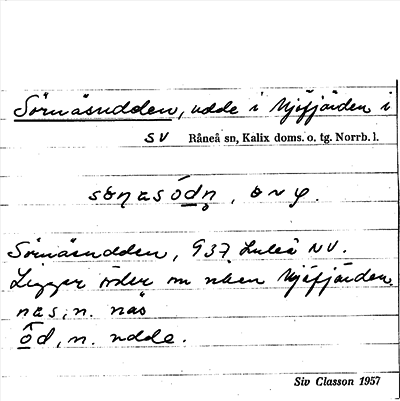 Sörnäsudden, udde i Mjöfjärden i
SV Råneå sn, Kalix doms. o. tg. Norrb. l.
Sörnäsudden, 937 Luleå NV.
Ligger öster om viken Mjöfjärden.
näs, n. näs
n. udde.
Siv Classon 1957